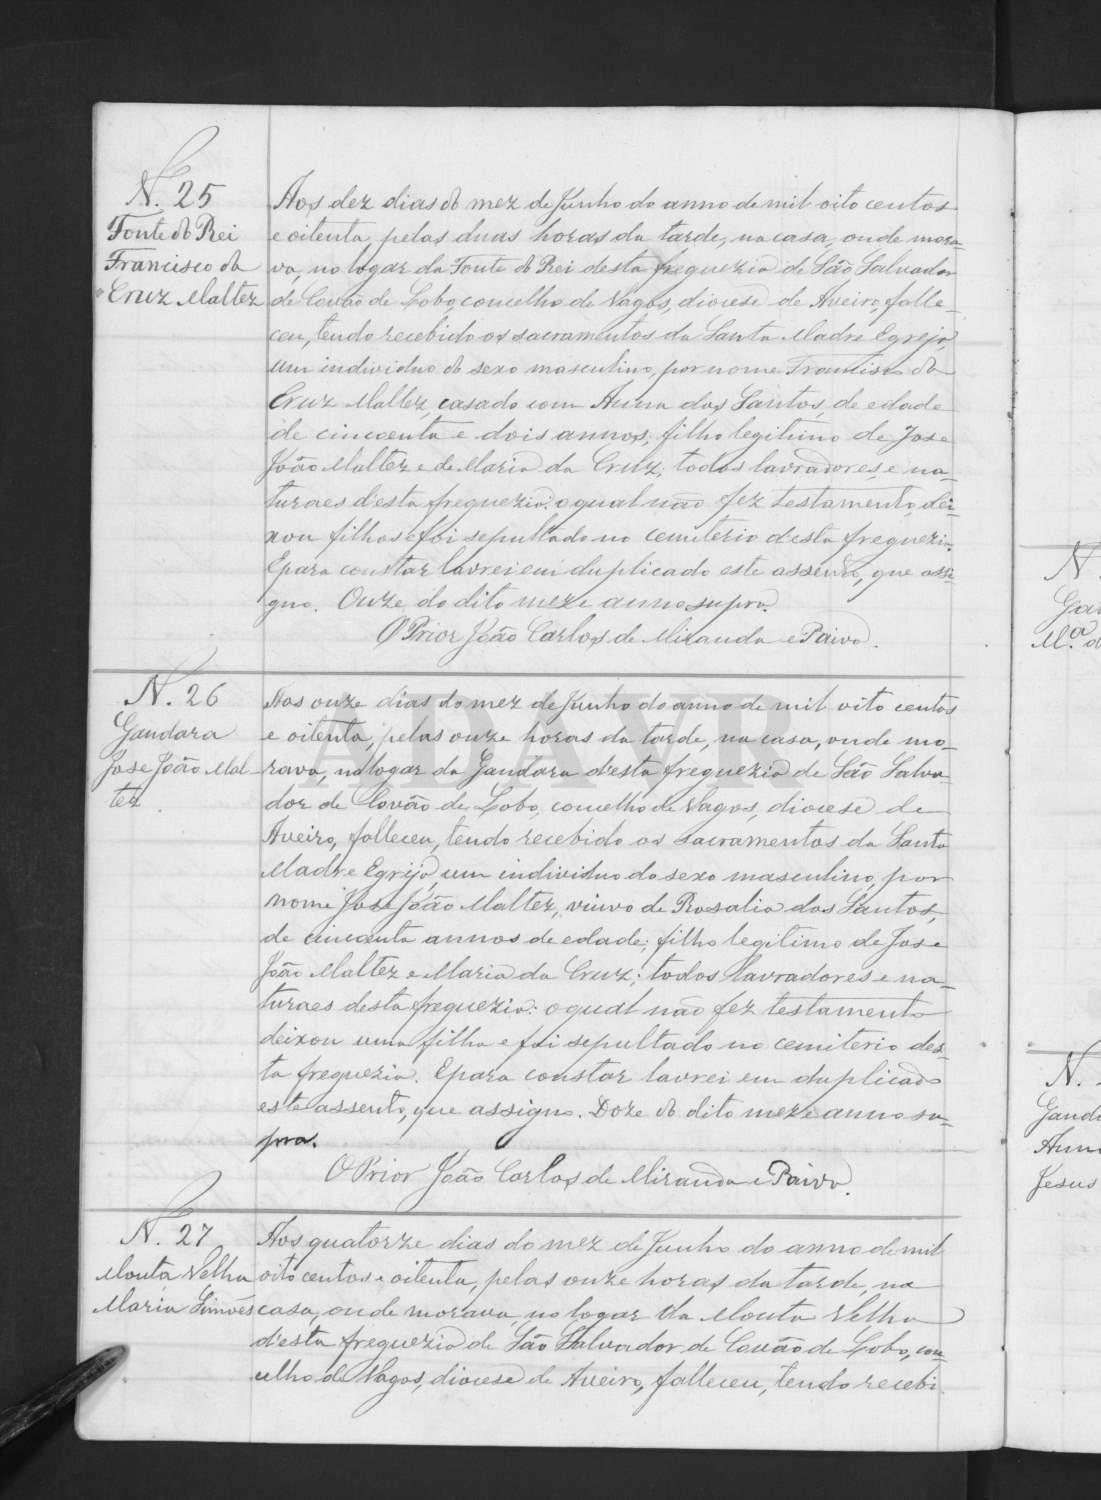 N. 25
Fonte do Rei
Francisco da
Cruz Maltez
Aos dez dias do mez de Junho do anno de mil oito centos
e oitenta, pelas duas horas da tarde, na casa, onde mora-
va, no logar da Fonte do Rei desta freguezia de São Salvador
de Covão de Lobo, concelho de Vagos, diocese de Aveiro, falle-
ceu, tendo recebido os sacramentos da Santa Madre Egreja,
um individuo do sexo masculino, por nome Francisco da
Cruz Maltez, casado com Anna dos Santos, de edade
de cincoenta e dois annos; filho legitimo de Jose
João Maltez e de Maria da Cruz; todos lavradores, e na-
turaes d'esta freguezia: o qual não fez testamento, dei-
xou filhos e foi sepultado no cemiterio d'esta freguezia.
E para constar lavrei em duplicado este assento, que assi-
gno. Onze do dito mez e anno supra.
O Prior João Carlos de Miranda e Paiva.
N. 26
Gandara
Jose João Mal-
tez
Aos onze dias do mez de Junho do anno de mil oito centos
e oitenta, pelas onze horas da tarde, na casa, onde mo-
rava, no logar da Gandara d'esta freguezia de São Salva-
dor de Covão de Lobo, concelho de Vagos, diocese de
Aveiro, falleceu, tendo recebido os sacramentos da Santa
Madre Egreja, um individuo do sexo masculino, por
nome Jose João Maltez, viuvo de Rosalia dos Santos,
de cincoenta annos de edade; filho legitimo de Jose
João Maltez e Maria da Cruz; todos lavradores e na-
turaes desta freguezia: o qual não fez testamento
deixou uma filha e foi sepultado no cemiterio des-
ta freguezia. E para constar lavrei em duplicado
este assento, que assigno. Doze do dito mez e anno su-
pra.
O Prior João Carlos de Miranda e Paiva.
N. 27
Mouta Velha
Maria Simões
Aos quatorze dias do mez de Junho do anno de mil
oito centos e oitenta, pelas onze horas da tarde, na
casa, onde morava, no logar da Mouta Velha
d'esta freguezia de São Salvador de Covão de Lobo, con-
celho de Vagos, diocese de Aveiro, falleceu, tendo recebi
ADAVR
N.
Gan
M.ª d
N.
Gand
Ann
Jesus